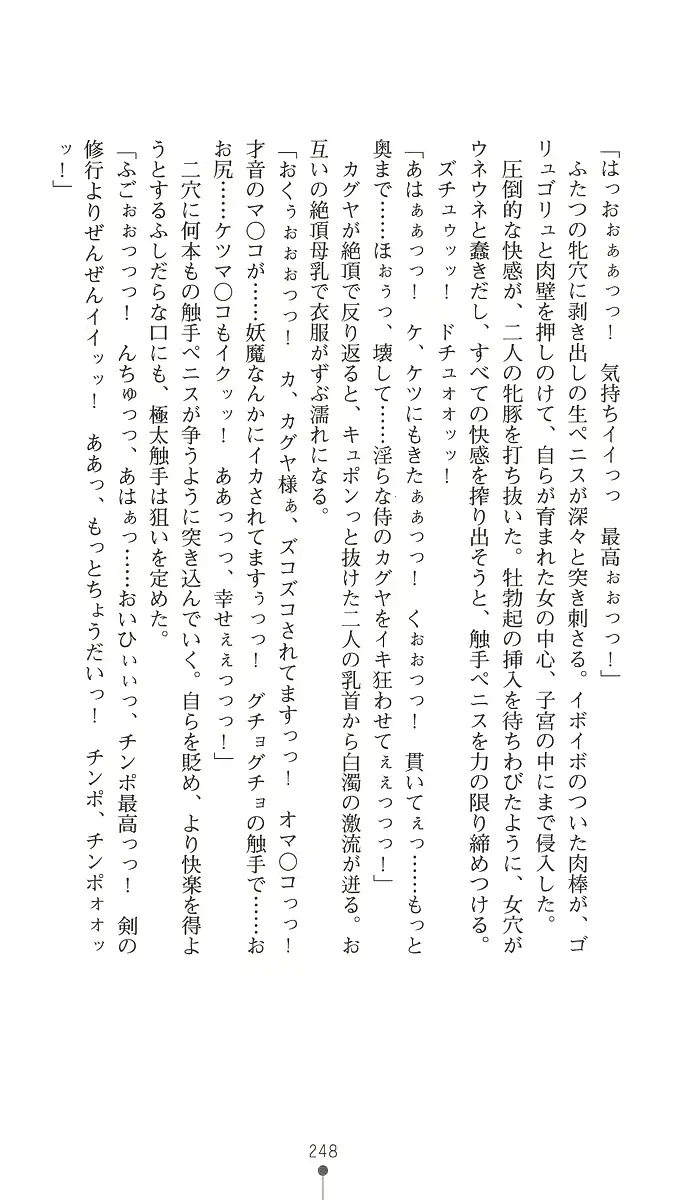 「はっおぉぁぁっっ！　気持ちイイっっ　最高ぉぉっっ！」
　ふたつの牝穴に剥き出しの生ペニスが深々と突き刺さる。イボイボのついた肉棒が、ゴ
リュゴリュと肉壁を押しのけて、自らが育まれた女の中心、子宮の中にまで侵入した。
　圧倒的な快感が、二人の牝豚を打ち抜いた。牡勃起の挿入を待ちわびたように、女穴が
ウネウネと蠢きだし、すべての快感を搾り出そうと、触手ペニスを力の限り締めつける。
　ズチュゥッッ！　ドチュォオッッ！
「あはぁぁっっ！　ケ、ケツにもきたぁぁっっ！　くぉぉっっ！　貫いてぇっ……もっと
奥まで……ほぉぅっ、壊して……淫らな侍のカグヤをイキ狂わせてぇぇっっっ！」
　カグヤが絶頂で反り返ると、キュポンっと抜けた二人の乳首から白濁の激流が迸る。お
互いの絶頂母乳で衣服がずぶ濡れになる。
「おくぅぉぉぉっっ！　カ、カグヤ様ぁ、ズコズコされてますっっ！　オマ〇コっっ！
才音のマ〇コが……妖魔なんかにイカされてますぅっっ！　グチョグチョの触手で……お
お尻……ケツマ〇コもイクッッ！　ああっっっ、幸せぇぇっっっ！」
　二穴に何本もの触手ペニスが争うように突き込んでいく。自らを貶め、より快楽を得よ
うとするふしだらな口にも、極太触手は狙いを定めた。
「ふごぉぉっっっ！　んちゅっっ、あはぁっ……おいひぃぃっ、チンポ最高っっ！　剣の
修行よりぜんぜんイイッッ！　ああっ、もっとちょうだいっ！　チンポ、チンポォォッ
ッ！」
248